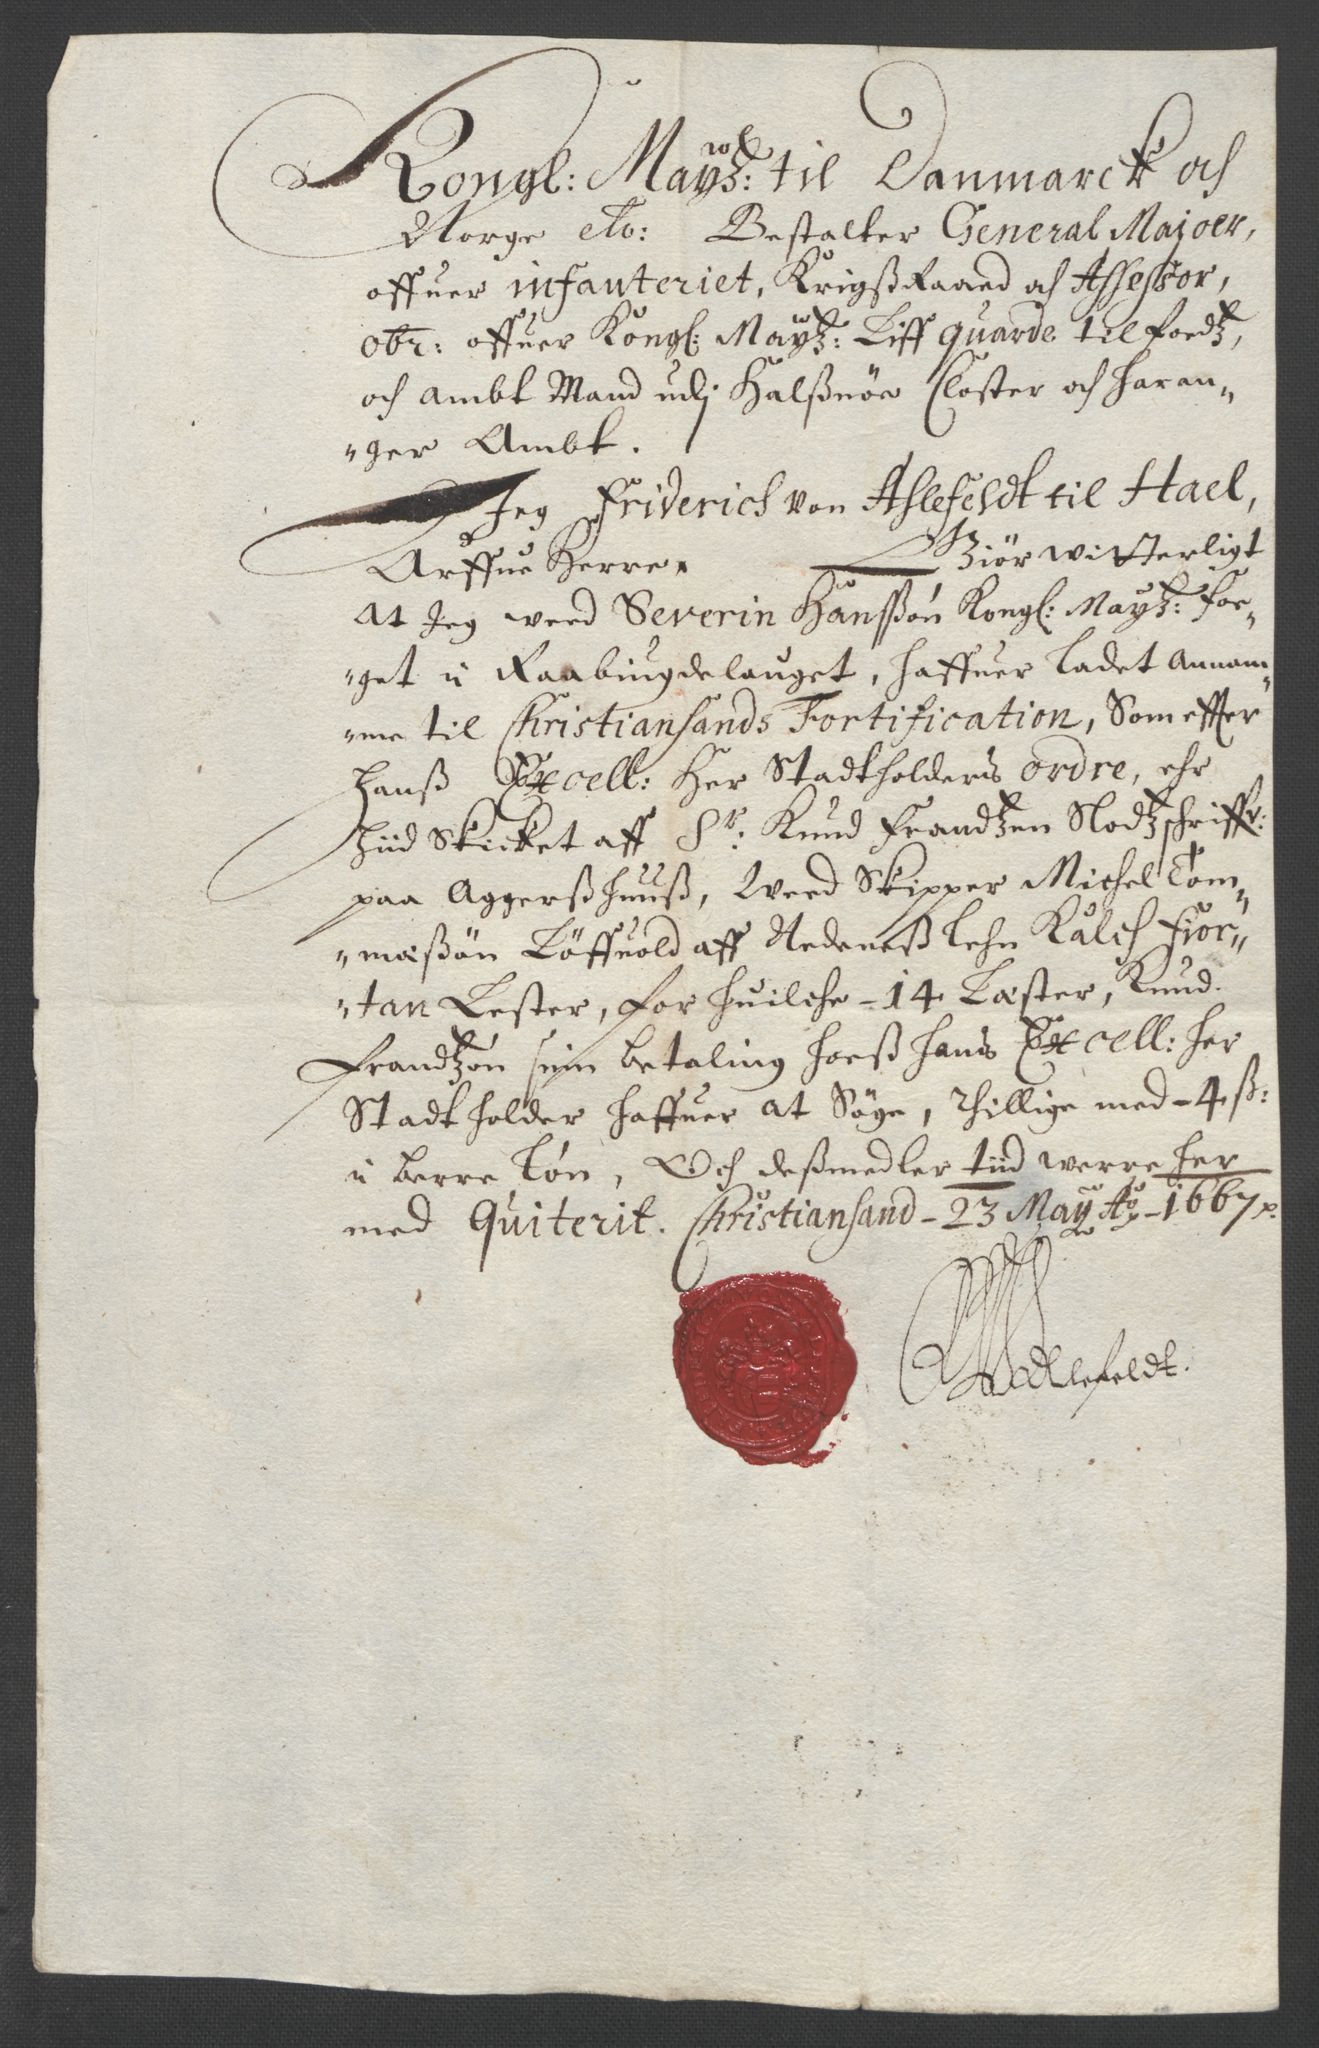 Kongl: Mayꝫ: til Danmarck och
Norge etc: Bestalter General Majoer,
offuer infanteriet, Krigß Raaed och Assessor,
obr: offuer Kongl: Maytꝫ: Liff quarde til foedtꝫ,
och Ambt Mand udj Halßnöe Closter och Haran„
„ger Ambt.
Jeg Friderich von Ahlefeldt til Hael,
Arffue Herre, Giör witterligt
At Jeg weed Severin Hanssøn Kongl: Maytꝫ: Foe„
„get i Raabiugdelauget, haffuer ladet Annam„
„me til Christiansands Fortification, Som effter
Hanß Excell: Her Stadtholders ordre, ehr
hiid Skicket aff Sr: Knud Frandtzen Slodtꝫschriffr:
paa Aggerßhuuß, Weed Skipper Michel Tom„
„meßön Löffuold aff Nedeneß Lehn Kalch Fior„
„tan Lester, for huilche -14 Læster, Knud
Frandtzøn siin betaling hoeß hans Excell: her
Stadtholder haffuer at Söge, Thillige med -4 ß:
i berre løn, Och deßmedler tiid werre her
med Quiterit. Christiansand -23 May Ao -1667 p.
Ahlefeldt.